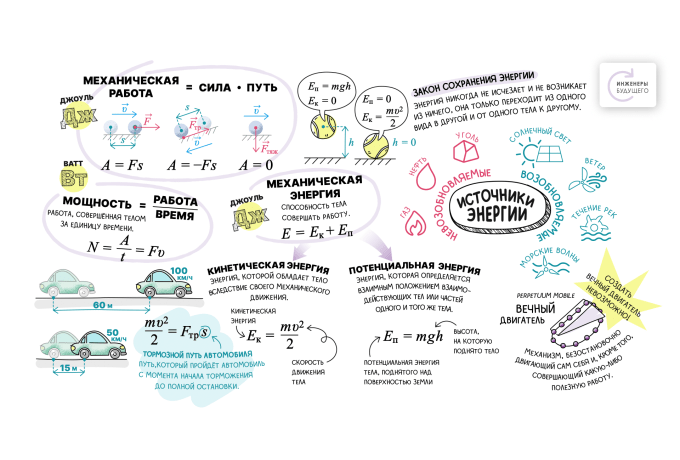 МЕХАНИЧЕСКАЯ
РАБОТА
= СИЛА • ПУТЬ
ДЖОУЛЬ
Дж
A = Fs
A = −Fs
A = 0
Eп = mgh
Eк = 0
Eп = 0
Eк = mv²/2
h
h = 0
ЗАКОН СОХРАНЕНИЯ ЭНЕРГИИ
ЭНЕРГИЯ НИКОГДА НЕ ИСЧЕЗАЕТ И НЕ ВОЗНИКАЕТ
ИЗ НИЧЕГО, ОНА ТОЛЬКО ПЕРЕХОДИТ ИЗ ОДНОГО
ВИДА В ДРУГОЙ И ОТ ОДНОГО ТЕЛА К ДРУГОМУ.
ИНЖЕНЕРЫ
БУДУЩЕГО
ВАТТ
Вт
МОЩНОСТЬ = РАБОТА/ВРЕМЯ
РАБОТА, СОВЕРШЁННАЯ ТЕЛОМ
ЗА ЕДИНИЦУ ВРЕМЕНИ.
N = A/t = Fv
МЕХАНИЧЕСКАЯ
ЭНЕРГИЯ
ДЖОУЛЬ
Дж
СПОСОБНОСТЬ ТЕЛА
СОВЕРШАТЬ РАБОТУ.
E = Eк + Eп
ИСТОЧНИКИ
ЭНЕРГИИ
НЕВОЗОБНОВЛЯЕМЫЕ
УГОЛЬ
НЕФТЬ
ГАЗ
ВОЗОБНОВЛЯЕМЫЕ
СОЛНЕЧНЫЙ СВЕТ
ВЕТЕР
ТЕЧЕНИЕ РЕК
МОРСКИЕ ВОЛНЫ
100
КМ/Ч
60 м
50
КМ/Ч
15 м
mv²/2 = Fтр s
ТОРМОЗНОЙ ПУТЬ АВТОМОБИЛЯ
ПУТЬ, КОТОРЫЙ ПРОЙДЁТ АВТОМОБИЛЬ
С МОМЕНТА НАЧАЛА ТОРМОЖЕНИЯ
ДО ПОЛНОЙ ОСТАНОВКИ.
КИНЕТИЧЕСКАЯ ЭНЕРГИЯ
ЭНЕРГИЯ, КОТОРОЙ ОБЛАДАЕТ ТЕЛО
ВСЛЕДСТВИЕ СВОЕГО МЕХАНИЧЕСКОГО
ДВИЖЕНИЯ.
КИНЕТИЧЕСКАЯ
ЭНЕРГИЯ
Eк = mv²/2
СКОРОСТЬ
ДВИЖЕНИЯ
ТЕЛА
ПОТЕНЦИАЛЬНАЯ ЭНЕРГИЯ
ЭНЕРГИЯ, КОТОРАЯ ОПРЕДЕЛЯЕТСЯ
ВЗАИМНЫМ ПОЛОЖЕНИЕМ ВЗАИМО-
ДЕЙСТВУЮЩИХ ТЕЛ ИЛИ ЧАСТЕЙ
ОДНОГО И ТОГО ЖЕ ТЕЛА.
Eп = mgh
ВЫСОТА,
НА КОТОРУЮ
ПОДНЯТО ТЕЛО
ПОТЕНЦИАЛЬНАЯ ЭНЕРГИЯ
ТЕЛА, ПОДНЯТОГО НАД
ПОВЕРХНОСТЬЮ ЗЕМЛИ
СОЗДАТЬ
ВЕЧНЫЙ ДВИГАТЕЛЬ
НЕВОЗМОЖНО!
PERPETUUM MOBILE
ВЕЧНЫЙ
ДВИГАТЕЛЬ
МЕХАНИЗМ, БЕЗОСТАНОВОЧНО
ДВИГАЮЩИЙ САМ СЕБЯ И, КРОМЕ ТОГО,
СОВЕРШАЮЩИЙ КАКУЮ-ЛИБО
ПОЛЕЗНУЮ РАБОТУ.